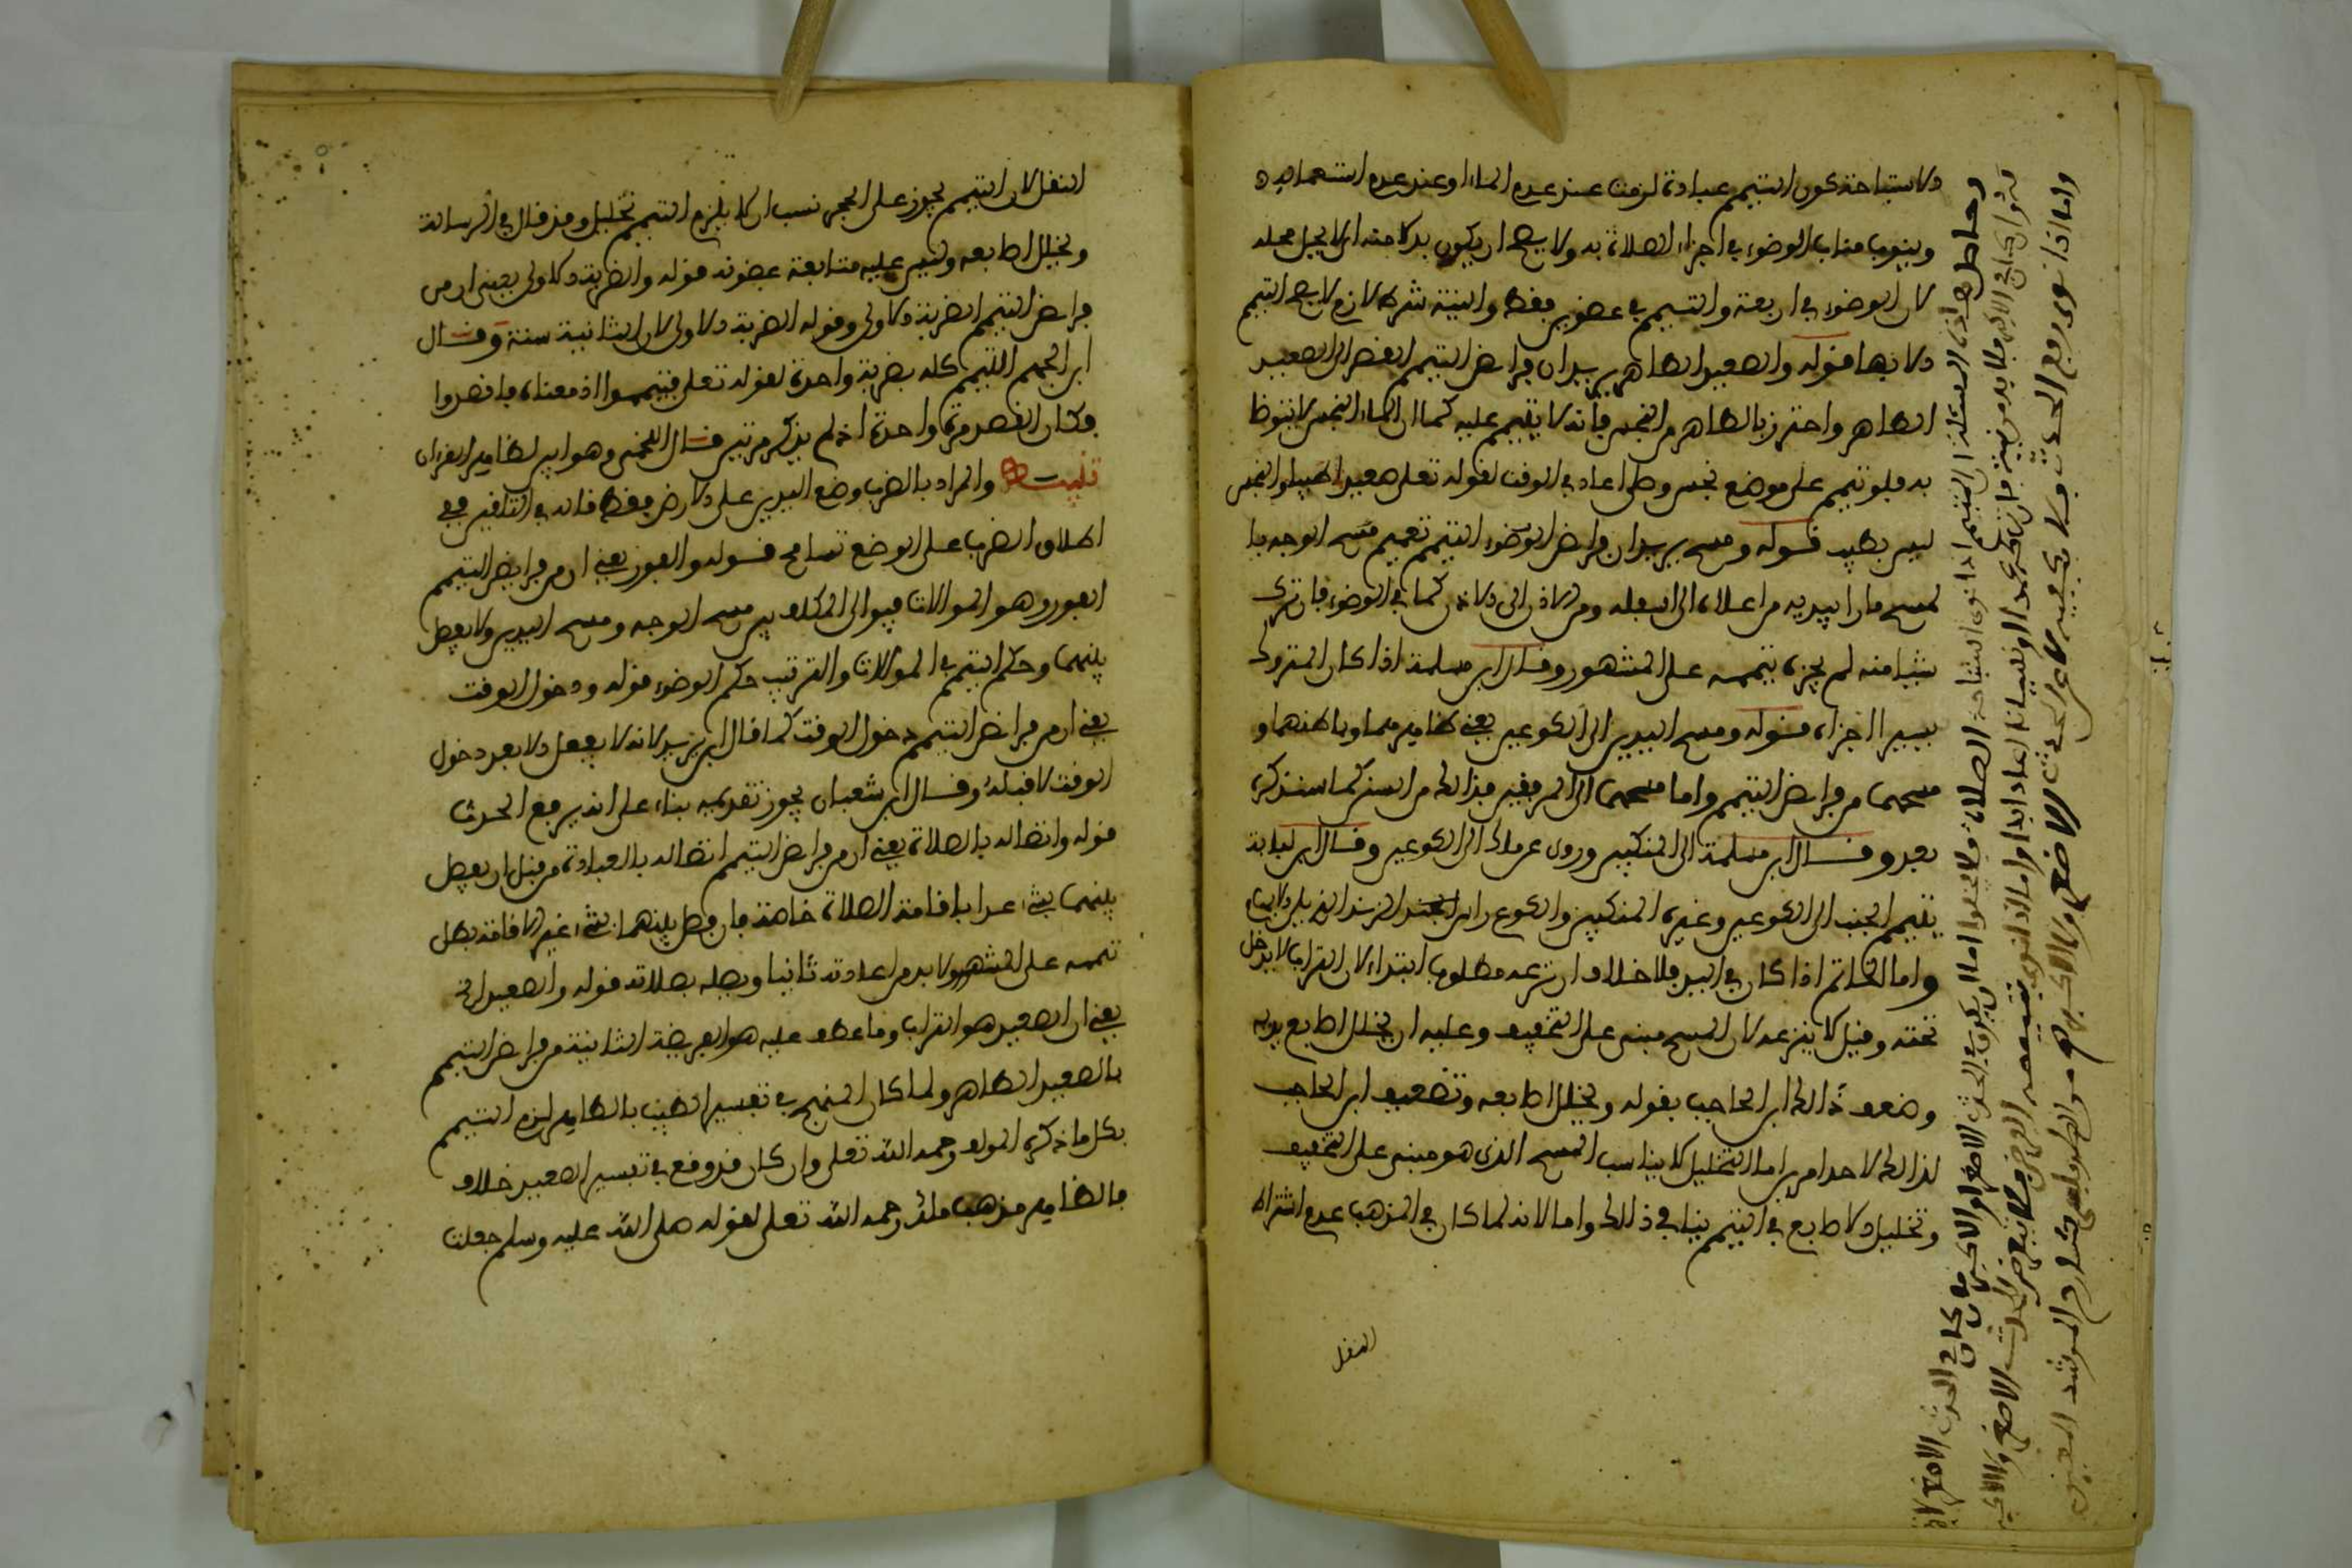 الاستباحة كون التيمم عبادة لزمت عند عدم الماء او عند عدم استعماله
وينوب مناب الوضوء في اجزاء الصلاة به ولا يصح ان يكون بدلا منه اذ لا يحل محله
لان الوضوء في اربعة والتيمم في عضوين فقط والنية شرط لازم لا يصح التيمم
الا بها قوله والصعيد الطاهر يريد ان فرائض التيمم القصد الى الصعيد
الطاهر واحترز بالطاهر من النجس فانه لا يتيمم عليه كما ان الماء النجس لا يتوضا
به فلو تيمم على موضع نجس وصلى اعاد في الوقت لقوله تعلى صعيدا طيبا والنجس
ليس بطيب قوله ومسح يريد ان فرائض التيمم تعميم مسح الوجه با
لمسح مارا بيديه من اعلاه الى اسفله ومن الاذن الى الاذن كما في الوضوء فان ترك
شيا منه لم يجزه تيممه على المشهور وقال ابن مسلمة اذا كان المتروك
يسيرا اجزاه قوله ومسح اليدين الى الكوعين يعني ظاهرهما وباطنهما و
مسحهما من فرائض التيمم واما مسحهما الى المرفقين فذالك من السنن كما سنذكره
بعد وقال ابن مسلمة الى المنكبين وروي عن مالك الى الكوعين وقال ابن لبابة
يتيمم الجنب الى الكوعين وغيره المنكبين والكوع راس الزند الذي يلي الابهام
واما الخاتم اذا كان في اليد فلا خلاف ان نزعه مطلوب ابتداء لان التراب لا يدخل
تحته وقيل لا ينزعه لان المسح مبني على التخفيف وعليه ان يخلل اصابع يديه
وضعف ذالك ابن الحاجب بقوله ويخلل اصابعه وتضعيف ابن الحاجب
لذالك لاحد امرين اما التخليل لا يناسب المسح الذي هو مبني على التخفيف
وتخليل الاصابع في التيمم ينافي ذالك واما لانه لما كان في المذهب عدم اشتراط
النقل
وحاصل هذه المسئلة ان المتيمم اذا نوى استباحة الصلاة فلا يخلوا اما ان يكون في الحدث الاصغر او الاكبر فان كان في الحدث الاصغر
وان كان في الاكبر فلا بد من نية فان تركه عمدا او نسيانا اعاد ابدا واما اذا نوى بتيممه الفرض فلا يتعرض لحدث الاصغر ولا الاكبر
واما اذا نوى رفع الحدث فلا يكفيه لا عن الحدث الاصغر ولا الاكبر
النقل لان التيمم يجوز على الحجر نسب ان لا يلزم التيمم تخليل وقد قال في الرسالة
ويخلل اصابعه وليس عليه متابعة غضونه قوله والضربة الاولى يعني ان من
فرائض التيمم الضربة الاولى وقوله الضربة الاولى لان الثانية سنة وقال
ابن الجهم التيمم كله بضربة واحدة لقوله تعلى فتيمموا اذ معناه فاقصدوا
فكان القصد مرة واحدة اذ لم يذكر مرتين قال اللخمي وهو ابين لظاهر القرءان
تنبيه والمراد بالضرب وضع اليدين على الارض فقط قاله في التلقين ففي
اطلاق الضرب على الوضع تسامح قوله والفور يعني ان من فرائض التيمم
الفور وهو الموالات فيوالي المكلف بين مسح الوجه ومسح اليدين ولا يفصل
بينهما وحكم التيمم في الموالات والترتيب حكم الوضوء قوله ودخول الوقت
يعني ان من فرائض التيمم دخول الوقت كما قال ابن يزيد لانه لا يفعل الا بعد دخول
الوقت لا قبله وقال ابن شعبان يجوز تقديمه بناء على انه يرفع الحدث
قوله واتصاله بالصلاة يعني ان من فرائض التيمم اتصاله بالعبادة من قبل ان يفصل
بينهما بشيء عدا باقامة الصلاة خاصة فان فصل بينهما بشيء غير الاقامة بطل
تيممه على المشهور ولا بد من اعادته ثانيا ويصله بصلاته قوله والصعيد الخ
يعني ان الصعيد هو التراب وما عطف عليه هو الفريضة الثانية من فرائض التيمم
بالصعيد الطاهر ولما كان الصحيح في تفسير الطيب بالطاهر لزم التيمم
بكل ما ذكره المولف رحمه الله تعلى وان كان قد وقع في تفسير الصعيد خلاف
فالظاهر مذهب مالك رحمه الله تعلى لقوله صلى الله عليه وسلم جعلت